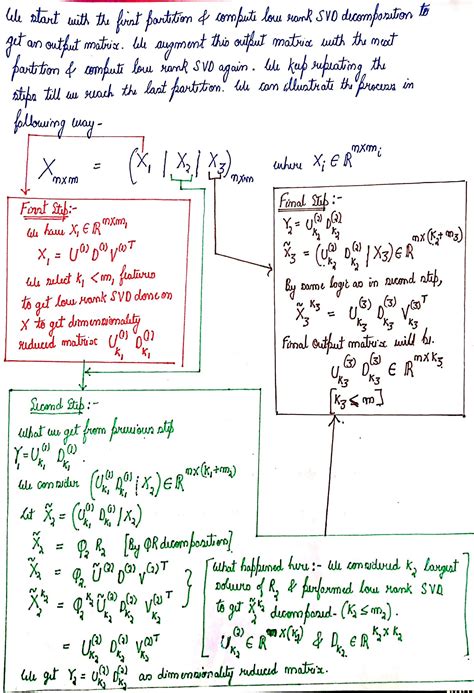 We start with the first partition & compute low rank SVD decomposition to
get an output matrix. We augment this output matrix with the next
partition & compute low rank SVD again. We keep repeating the
steps till we reach the last partition. We can illustrate the process in
following way -
X_{n×m} = (X_1 | X_2 | X_3)_{n×m} where X_i ∈ ℝ^{n×m_i}
First Step:-
We have X_1 ∈ ℝ^{n×m_1}
X_1 = U^{(1)} D^{(1)} V^{(1)T}
We select k_1 < m_1 features
to get low rank SVD done on
X to get dimensionality
reduced matrix U_{k_1}^{(1)} D_{k_1}^{(1)}
Final Step:-
Y_2 = U_{k_2}^{(2)} D_{k_2}^{(2)}
X̃_3 = (U_{k_2}^{(2)} D_{k_2}^{(2)} | X_3) ∈ ℝ^{n×(k_2+m_3)}
By same logic as in second step,
X̃_3^{k_3} = U_{k_3}^{(3)} D_{k_3}^{(3)} V_{k_3}^{(3)T}
Final output matrix will be
U_{k_3}^{(3)} D_{k_3}^{(3)} ∈ ℝ^{n×k_3}
[k_3 ≤ m]
Second Step:-
What we get from previous step
Y_1 = U_{k_1}^{(1)} D_{k_1}^{(1)}
We consider (U_{k_1}^{(1)} D_{k_1}^{(1)} | X_2) ∈ ℝ^{n×(k_1+m_2)}
Let X̃_2 = (U_{k_1}^{(1)} D_{k_1}^{(1)} | X_2)
X̃_2 = Q_2 R_2 [By QR decomposition]
X̃_2 = Q_2 Ũ^{(2)} D^{(2)} V^{(2)T}
X̃_2^{k_2} = Q_2^{k_2} Ũ_{k_2}^{(2)} D_{k_2}^{(2)} V_{k_2}^{(2)T}
= U_{k_2}^{(2)} D_{k_2}^{(2)} V_{k_2}^{(2)T}
We get Y_2 = U_{k_2}^{(2)} D_{k_2}^{(2)} as dimensionality reduced matrix.
What happened here:- We considered k_2 largest
of R_2 & performed low rank SVD
to get X̃_2^{k_2} decomposed. (k_2 ≤ m_2).
U_{k_2}^{(2)} ∈ ℝ^{n×(k_2)} & D_{k_2} ∈ ℝ^{k_2×k_2}